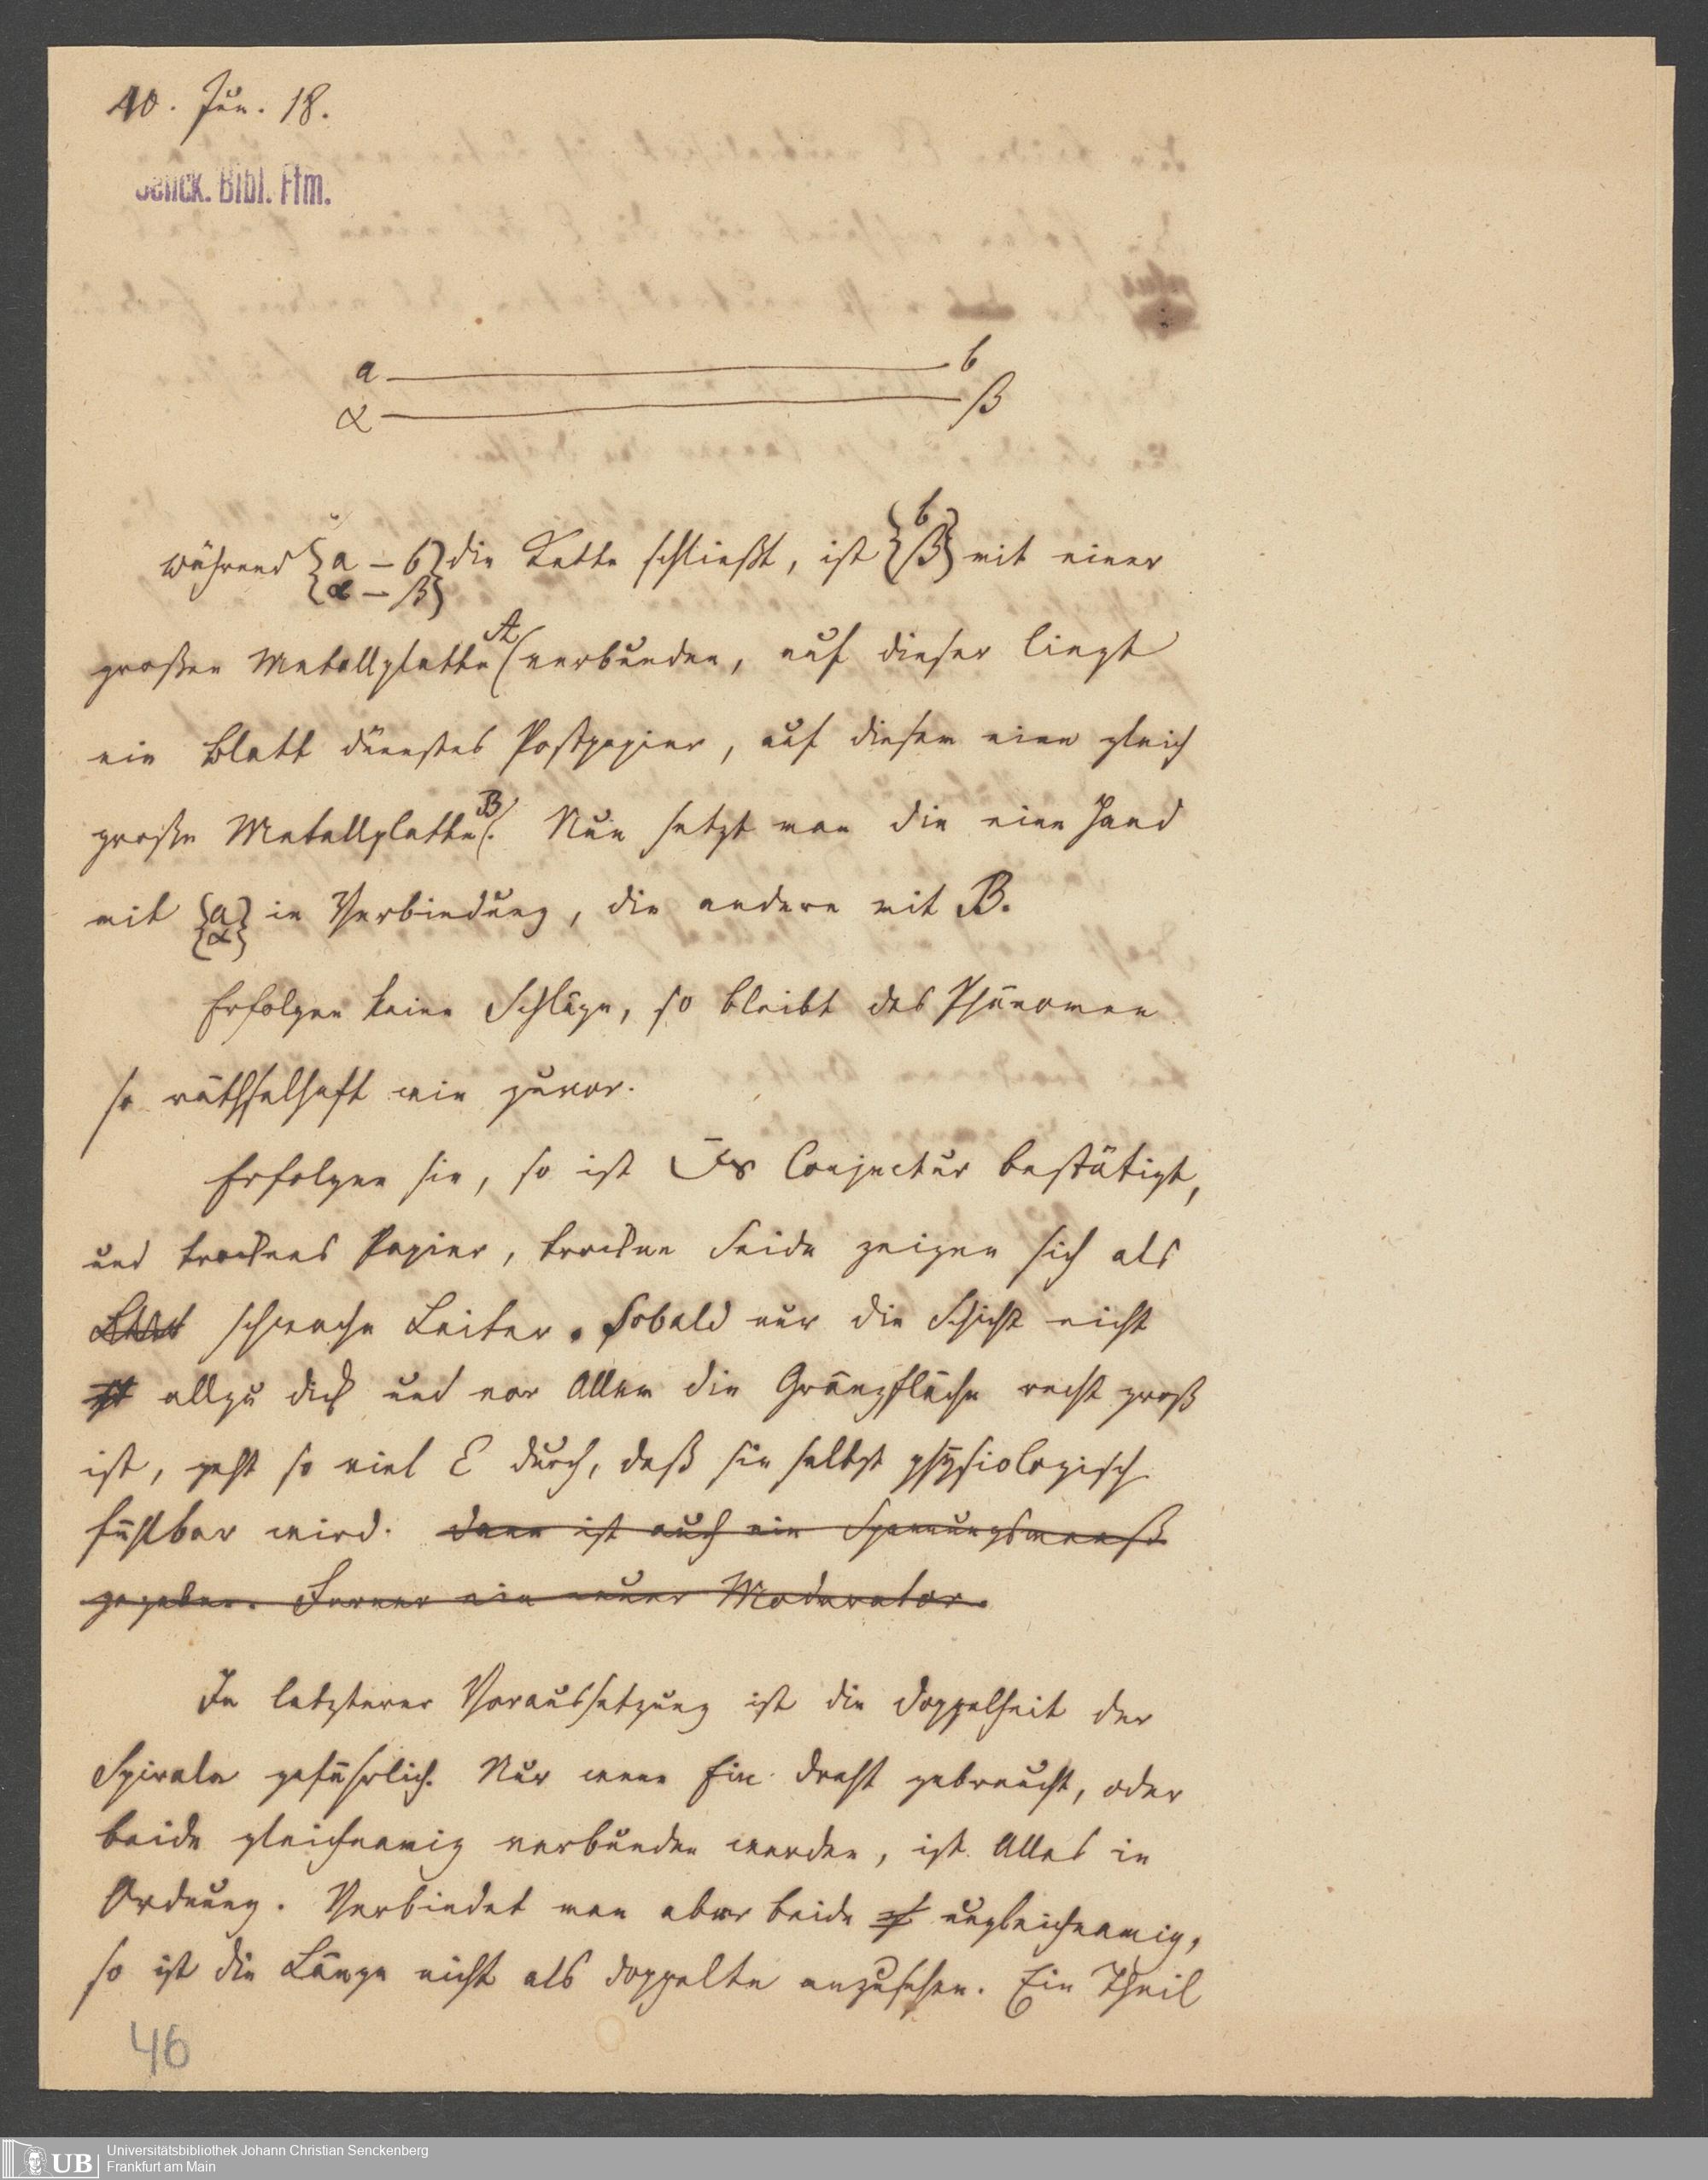 10. Jun. 18.
Senck. Bibl. Ffm.
a b
α β
während {a – b} die Kette schließt, ist {b β} mit einer
{α – β}
großen Metallplatte (A verbunden, auf dieser liegt
ein Blatt dünnstes Postpapier, auf diesem eine gleich
große Metallplatte (B. Nun setzt man die eine Hand
mit {a α} in Verbindung, die andere mit B.
Erfolgen keine Schläge, so bleibt das Phänomen
so räthselhaft wie zuvor.
Erfolgen sie, so ist Conjectur bestätigt,
und trocknes Papier, trockne Seide zeigen sich als
schwache Leiter. Sobald nur die Schicht nicht
allzu dick und vor Allem die Gränzfläche recht groß
ist, geht so viel E durch, daß sie selbst physiologisch
fühlbar wird. Dann ist auch ein Spannungsmaaß
gegeben. Ferner ein neuer Moderator.
In letzterer Voraussetzung ist die Doppelheit der
Spirale gefährlich. Nur wenn Ein Draht gebraucht, oder
beide gleichnamig verbunden werden, ist Alles in
Ordnung. Verbindet man aber beide ungleichnamig,
so ist die Länge nicht als doppelte anzusehen. Ein Theil
46
UB
Universitätsbibliothek Johann Christian Senckenberg
Frankfurt am Main